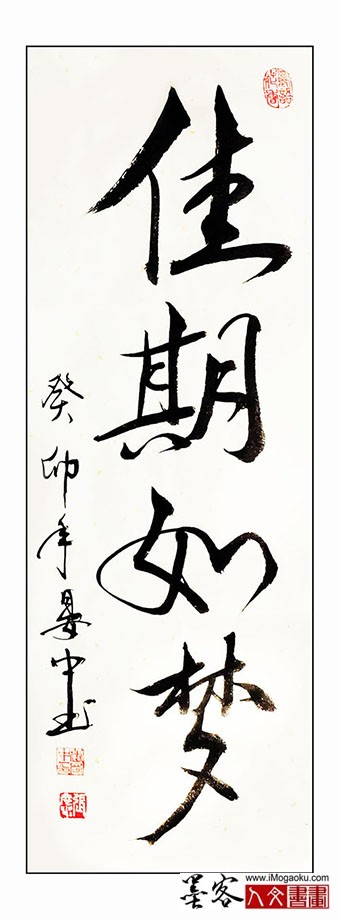 佳期如梦
癸卯年晏中书
墨客
www.iMogaoku.com
人文書畫